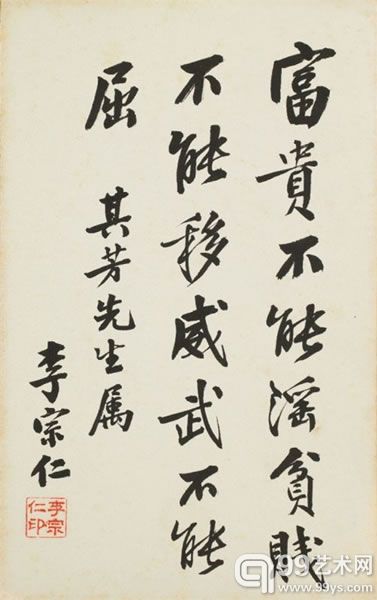 富貴不能淫貧賤
不能移威武不能
屈
其芳先生属
李宗仁
李宗仁印
99艺术网
www.99ys.com